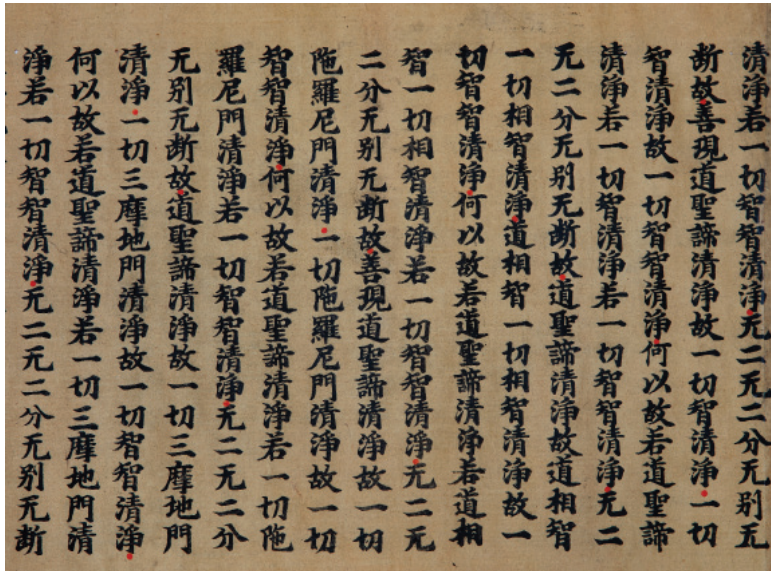 清淨若一切智智清淨无二无二分无别无
断故善現道聖諦清淨故一切智清淨一切
智清淨故一切智智清淨何以故若道聖諦
清淨若一切智清淨若一切智智清淨无二
无二分无别无断故道聖諦清淨故道相智
一切相智清淨道相智一切相智清淨故一
切智智清淨何以故若道聖諦清淨若道相
智一切相智清淨若一切智智清淨无二无
二分无别无断故善現道聖諦清淨故一切
陁羅尼門清淨一切陁羅尼門清淨故一切
智智清淨何以故若道聖諦清淨若一切陁
羅尼門清淨若一切智智清淨无二无二分
无别无断故道聖諦清淨故一切三摩地門
清淨一切三摩地門清淨故一切智智清淨
何以故若道聖諦清淨若一切三摩地門清
淨若一切智智清淨无二无二分无别无断